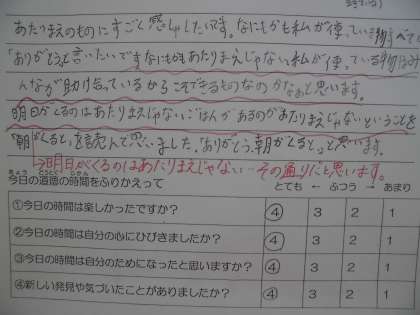 あたりまえのものにすごく感しゃしたいです。なにもかも私が使っている物すべて
「ありがとうと言いたいです。なにもかもあたりまえじゃない。私が使っている物はみ
んなが助け合っているからこそできるものなのかなぁと思います。
明日がくるのはあたりまえじゃない。ごはんがあるのがあたりまえじゃないということを
「朝がくると」を読んで思いました。「ありがとう。朝がくると」と思います。
→明日がくるのはあたりまえじゃない…その通りだと思います。
今日の道徳の時間をふりかえって とても ← ふつう → あまり
①今日の時間は楽しかったですか? ④ 3 2 1
②今日の時間は自分の心にひびきましたか? ④ 3 2 1
③今日の時間は自分のためになったと思いますか? ④ 3 2 1
④新しい発見や気づいたことがありましたか? ④ 3 2 1